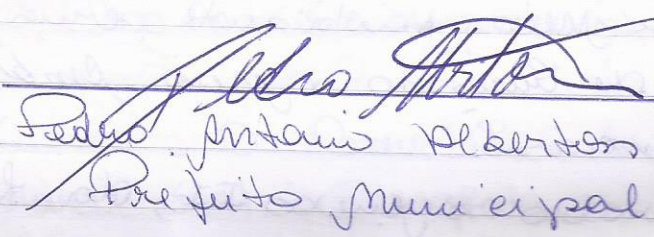 Pedro Anto
Pedro Antonio Alberton
Prefeito Municipal